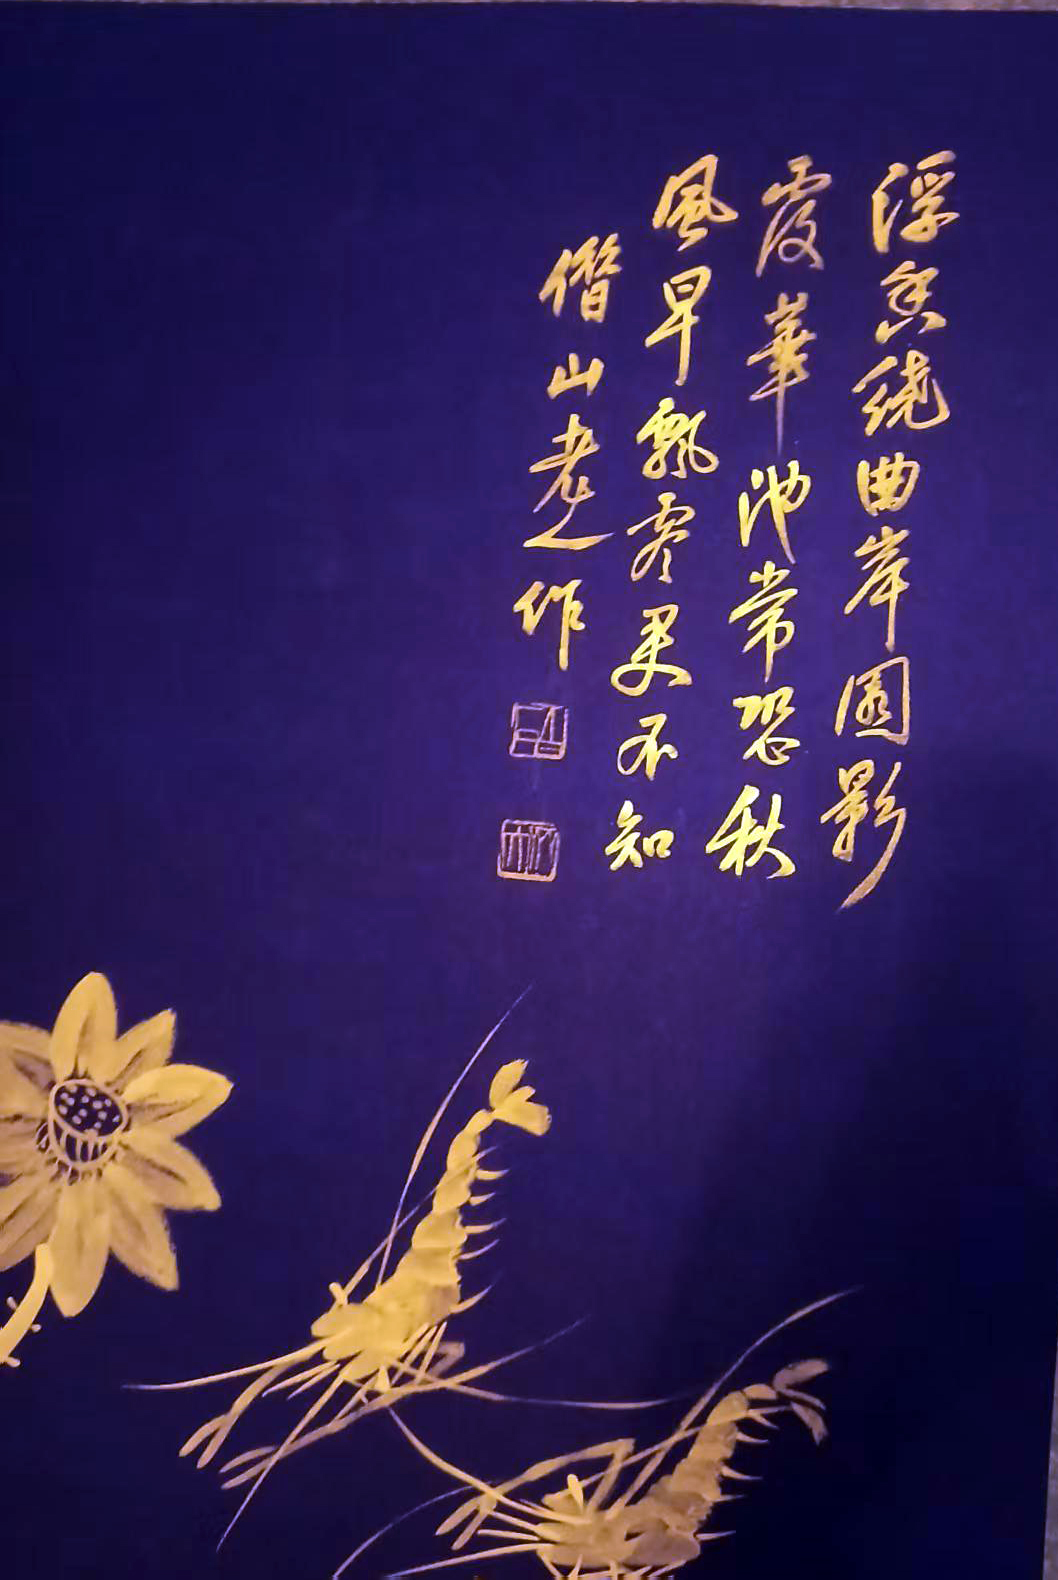 浮香繞曲岸圓影
覆華池常恐秋
風早飄零君不知
借山老人作